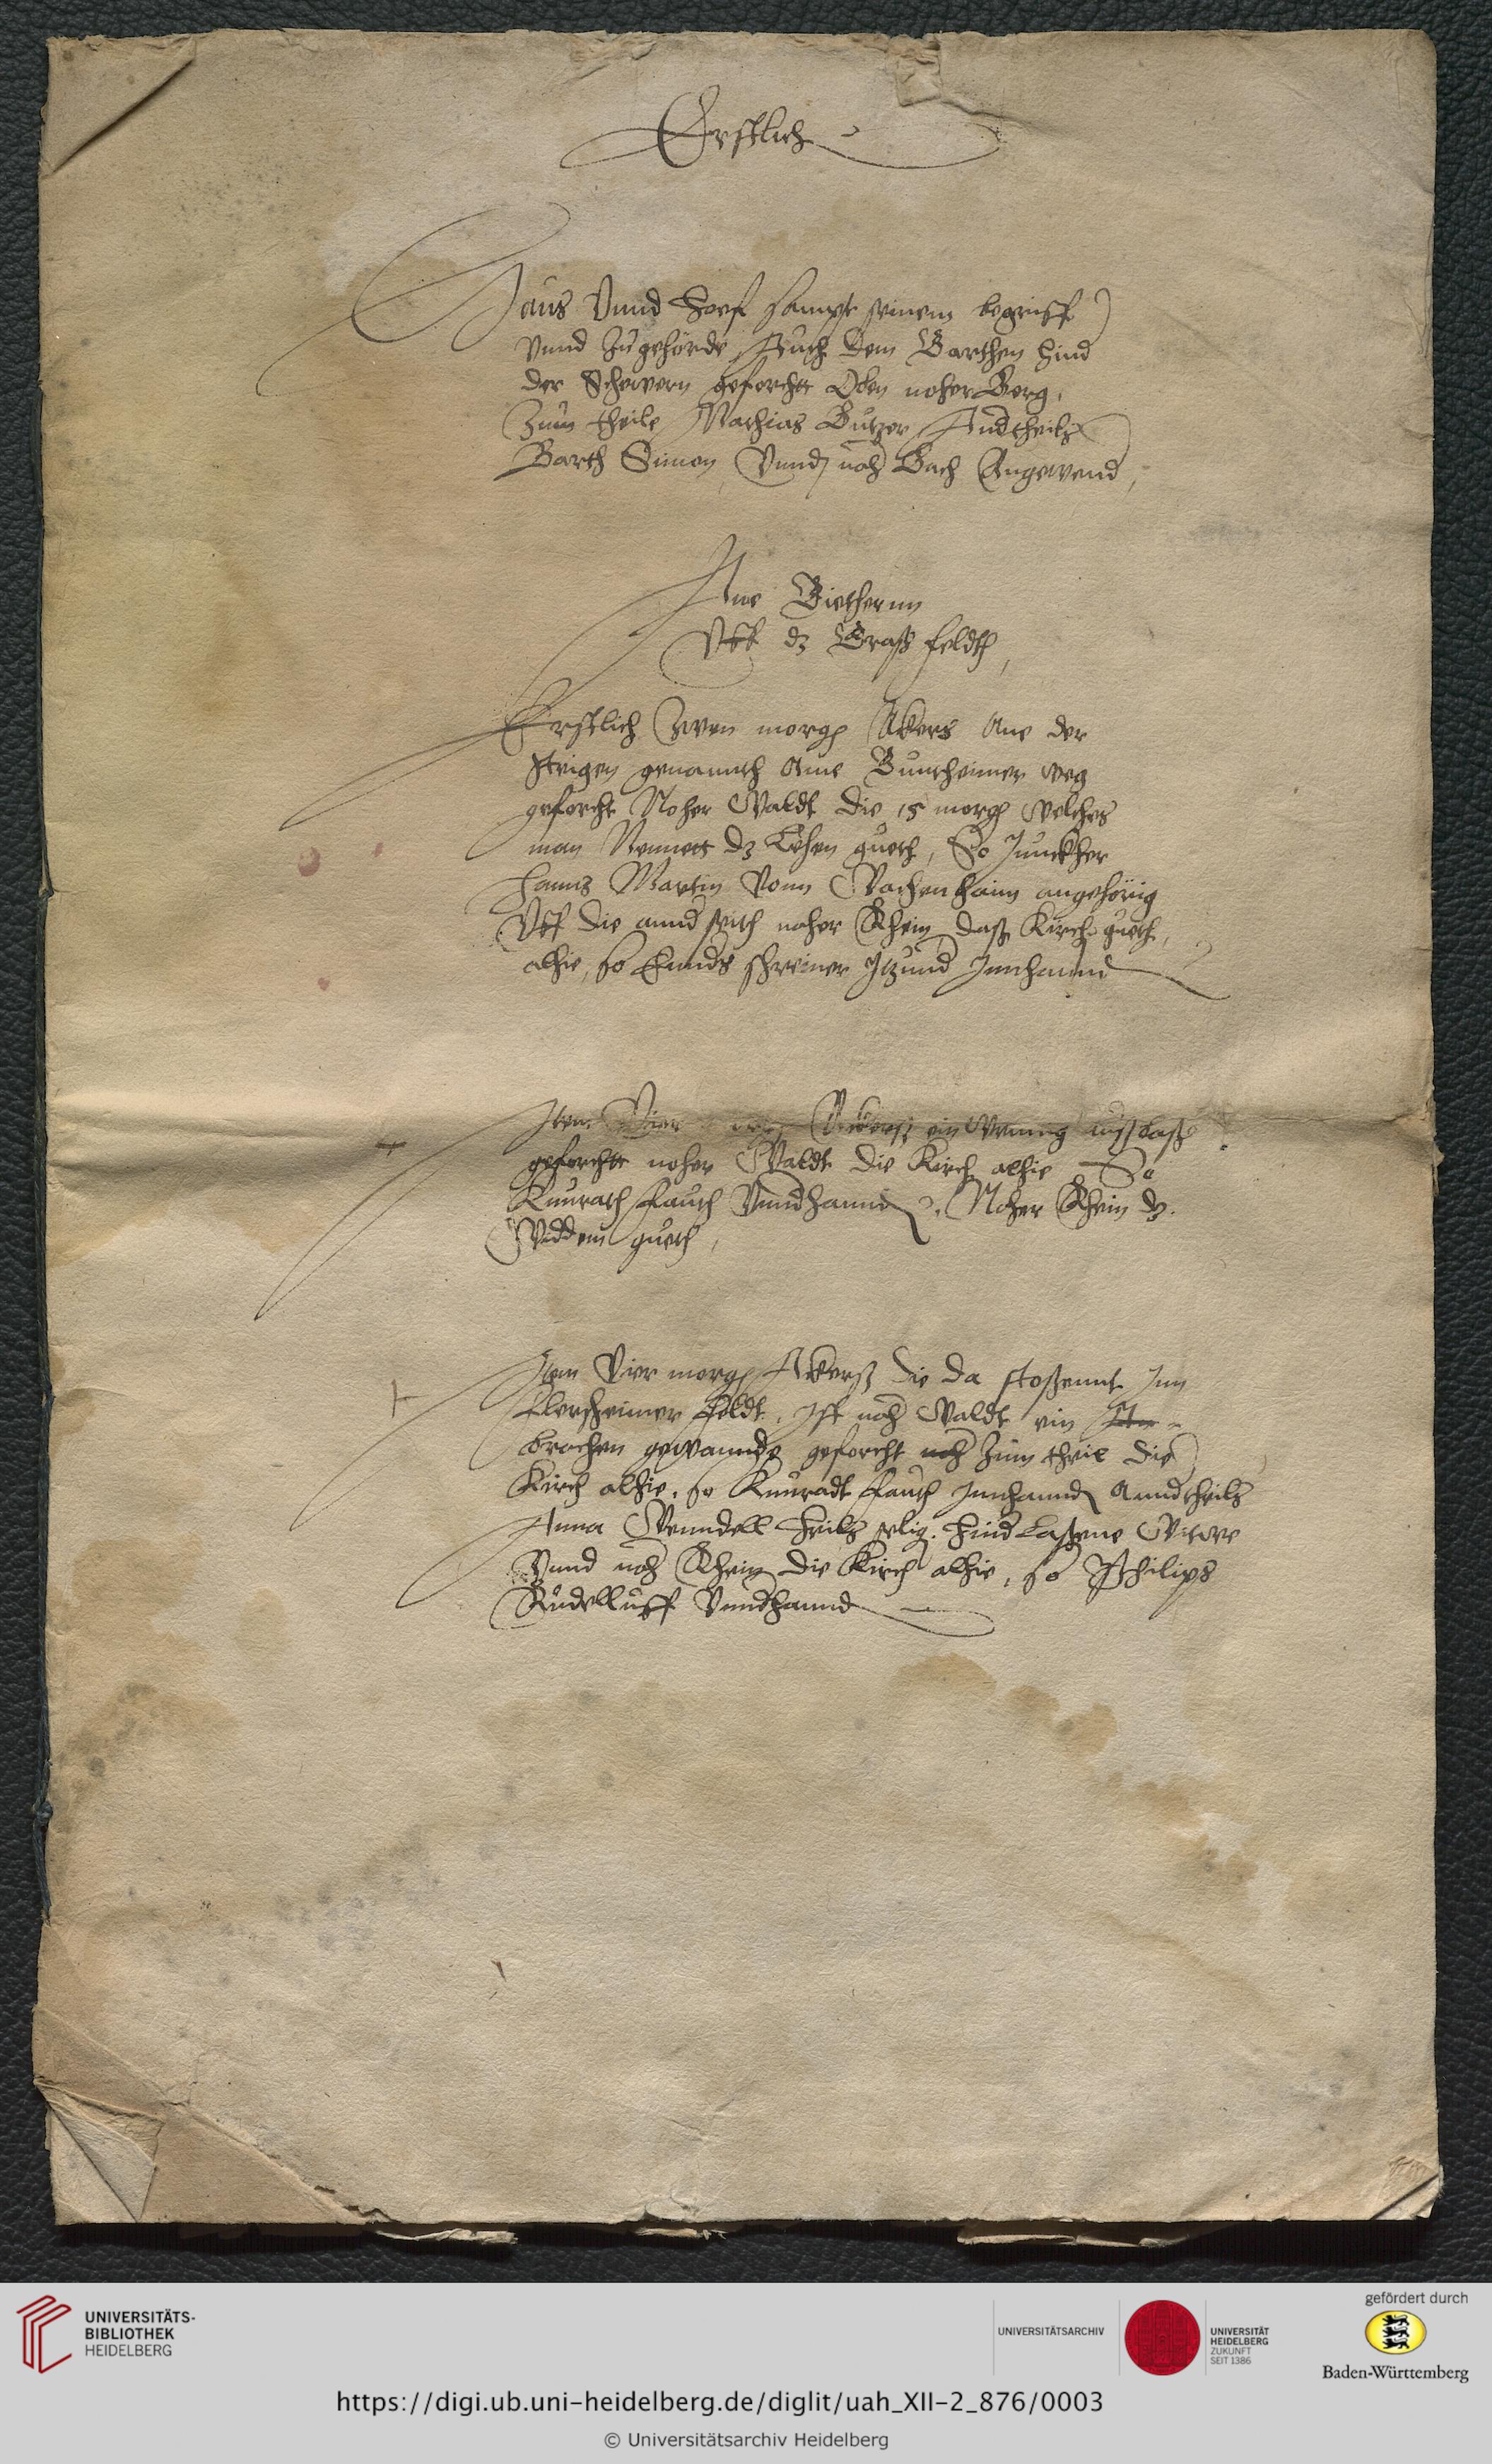 Erstlich
Haus Vnnd Hoef sampt seinem begriff
Vnnd Zugehörde, Auch dem Garthen hind
der Schewern geforcht Oben noher Berg,
Zum theile Mathias Butzer Andtheilß
Barth Simon, Vnnd noh Bach Angewend,
Ane Giethernn
Vff dz Graß feldth,
Erstlich Zwen morg Akers Ane der
Steigen genannth Ame Guntheimer weg
geforcht Noher Waldt die 15 morg Welches
man Nennett dz Lehen gueth, So Junckher
Hanns Martin Vonn Wachenhaim angehörig
Vff die annd seith noher Rhein daß Kirch gueth,
alhie, so Enndrs schreiner Itzund Innhannd
Item Vier morg Ackerß ein Wenning
geforcht noher Waldt die Kirch alhie So
Kunrath Fauth Vnndhannd, Noher Rhein dz.
Widdem gueth,
Item Vier morg Akerß die da stoßennt Inn
flersheimer feldt, Ist noh Waldt ein
brochen gewannde geforcht noh Zum theil die
Kirch alhie, so Kunradt Fauth Innhannd Anndtheilß
Anna Wenndell Heilß selig. Hind Laßene Witwe
Vnnd noh Rhein die Kirch alhie, so Philips
Rudelluff Vnndhannd
UNIVERSITÄTS-
BIBLIOTHEK
HEIDELBERG
UNIVERSITÄTSARCHIV
UNIVERSITÄT
HEIDELBERG
ZUKUNFT
SEIT 1386
gefördert durch
Baden-Württemberg
https://digi.ub.uni-heidelberg.de/diglit/uah_XII-2_876/0003
© Universitätsarchiv Heidelberg